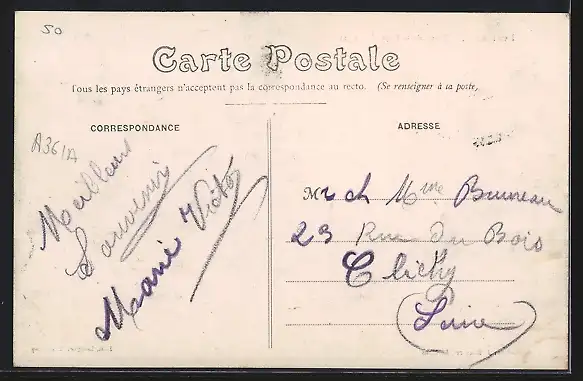 50
Carte Postale
Tous les pays étrangers n'acceptent pas la correspondance au recto. (Se renseigner à la poste,
CORRESPONDANCE
ADRESSE
A361A
Meilleurs
Souvenir
Marie
M
Mme Bruneau
23 Rue Du Bois
Clichy
(Seine)